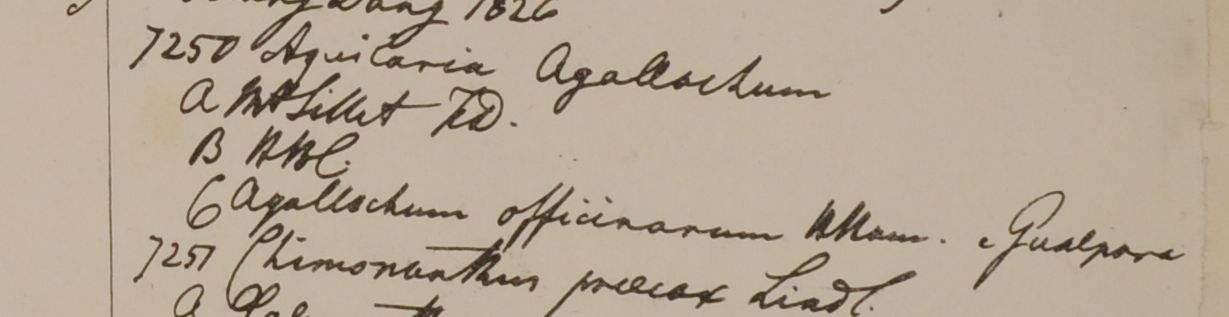 1826
7250 Aquilaria Agallochum
A Mt Sillet FD.
B HBC.
C Agallochum officinarum HHam. e Gualpara
7251 Chimonanthus præcox Lindl.